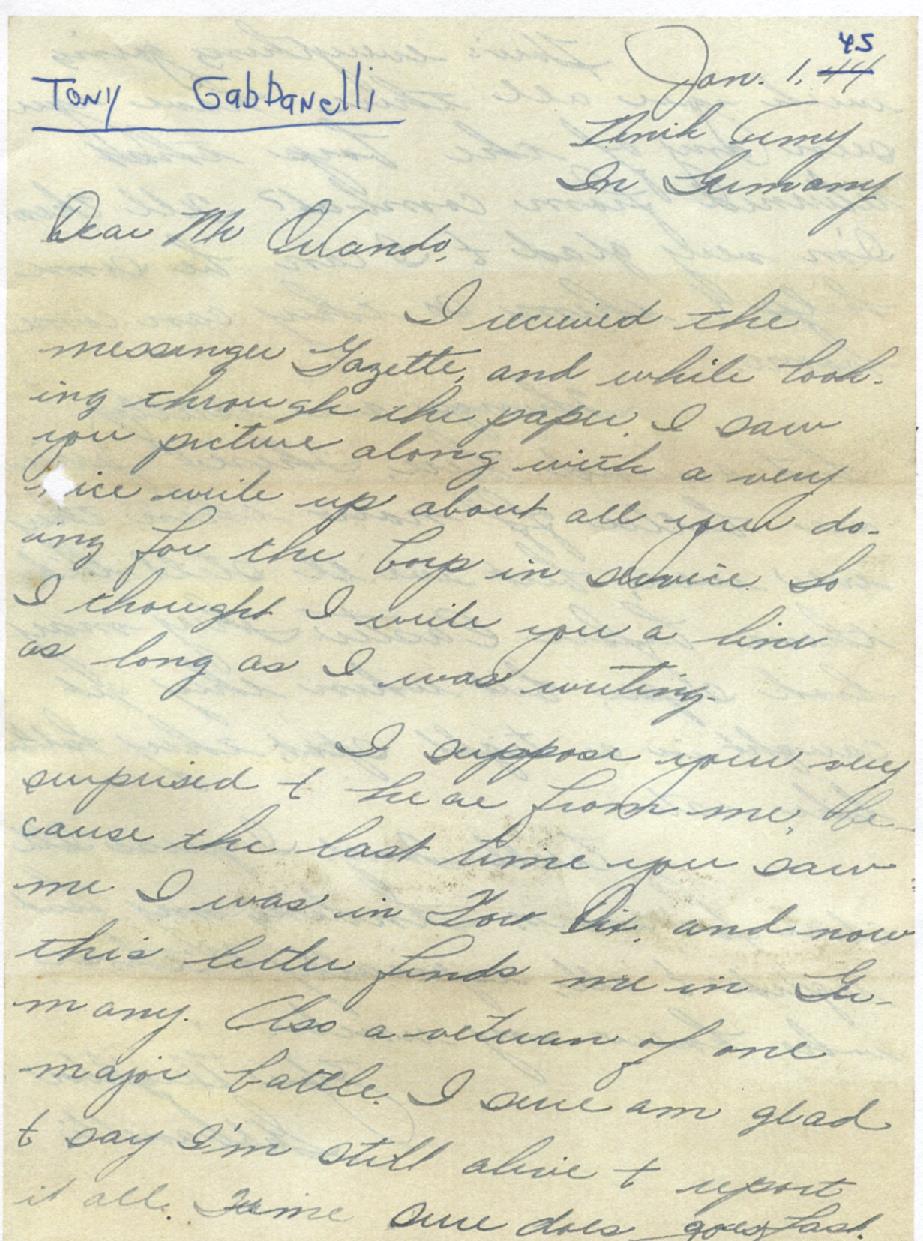 45
Jan. 1, 44
Tony Gabbanelli
Ninth Army
In Germany
Dear Mr Orlando,
I received the
messenger Gazette, and while look-
ing through the paper I saw
you picture along with a very
nice write up about all your do-
ing for the boys in service. So
I thought I write you a line
as long as I was writing.
I suppose your very
surprised t hear from me, be-
cause the last time you saw
me I was in Fort Dix, and now
this letter finds me in Ger-
many. Also a veteran of one
major battle. I sure am glad
t say I'm still alive t report
it all. Time sure does goes fast.